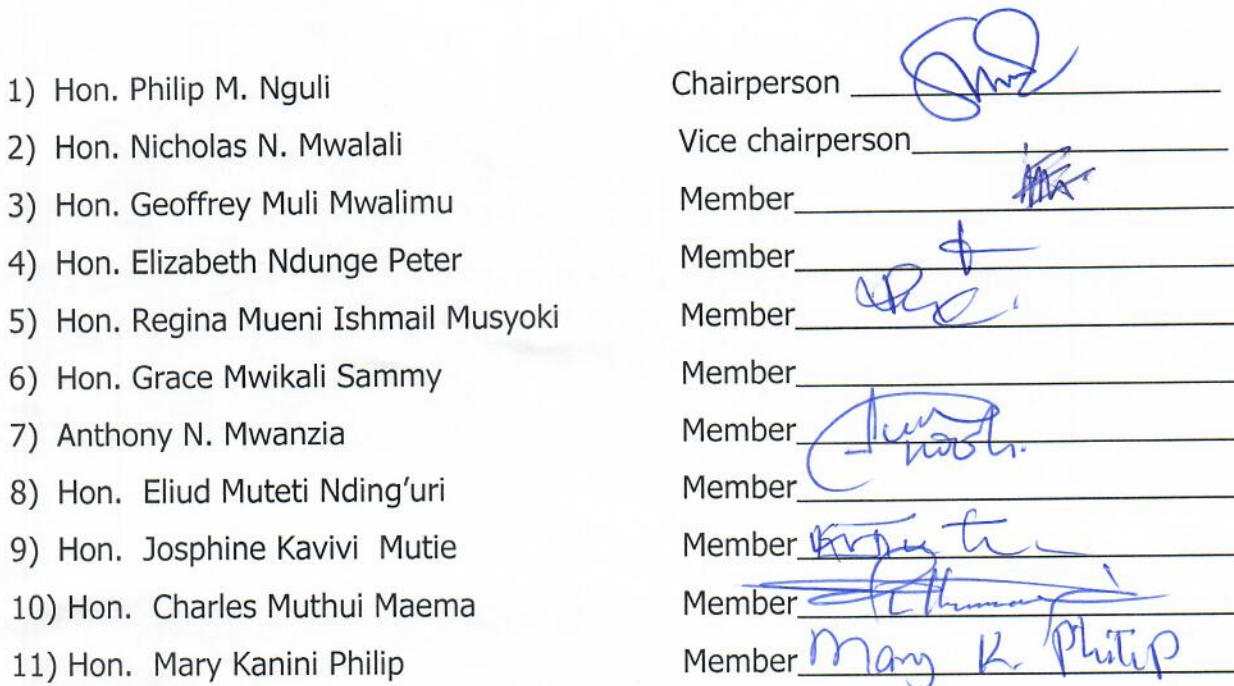 1) Hon. Philip M. Nguli Chairperson
2) Hon. Nicholas N. Mwalali Vice chairperson
3) Hon. Geoffrey Muli Mwalimu Member
4) Hon. Elizabeth Ndunge Peter Member
5) Hon. Regina Mueni Ishmail Musyoki Member
6) Hon. Grace Mwikali Sammy Member
7) Anthony N. Mwanzia Member
8) Hon. Eliud Muteti Nding'uri Member
9) Hon. Josphine Kavivi Mutie Member
10) Hon. Charles Muthui Maema Member
11) Hon. Mary Kanini Philip Member Mary K. Philip